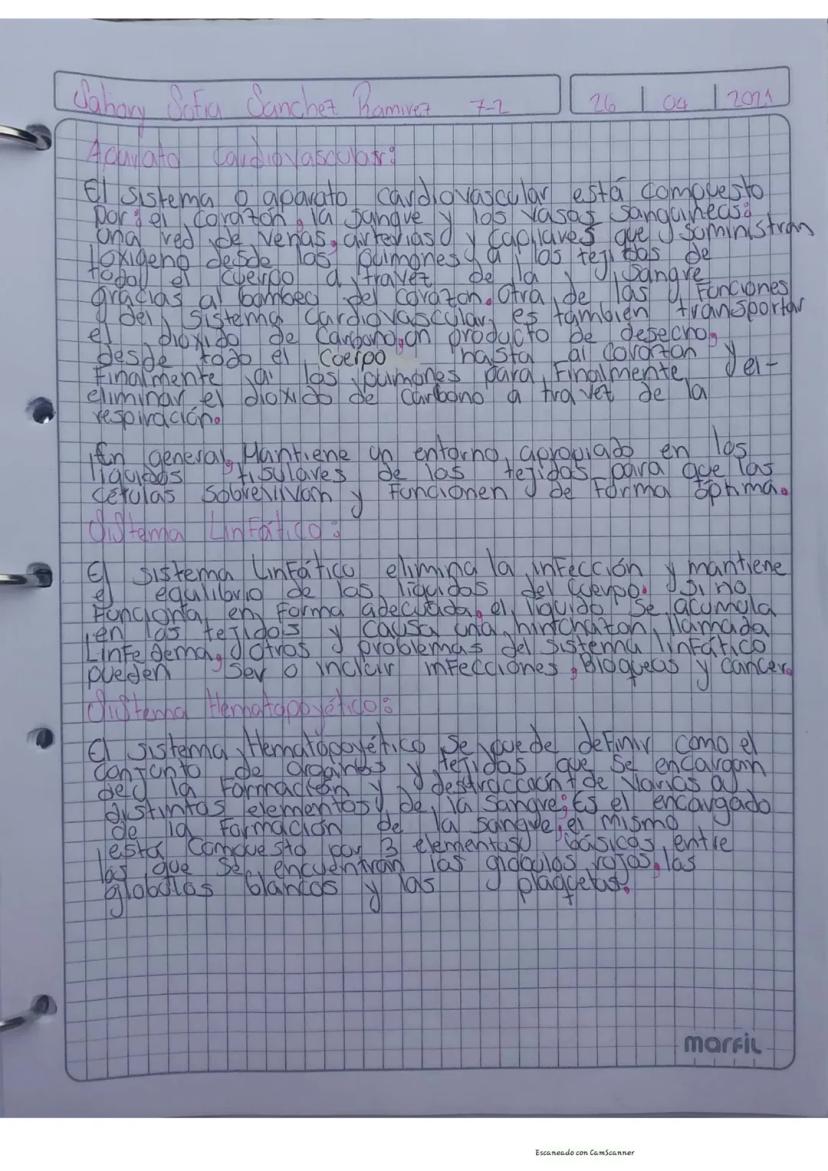 Sahory Sofia Sanchez Ramirez 7-2 26 | 04 | 2021
Aparato Cardiovascular:
El sistema o aparato cardiovascular está compuesto
por: el corazon, la sangre y los vasos sanguineos:
una red de venas, arterias y capilares que suministran
oxigeno desde los pulmones a los tejidos de
todo el cuerpo a travez de la sangre
gracias al bombeo del corazon. otra de las funciones
del sistema cardiovascular es tambien transportar
el dioxido de carbono, un producto de desecho,
desde todo el cuerpo hasta al corazon y
finalmente a los pulmones para finalmente el-
eliminar el dioxido de carbono a travez de la
respiración.
En general, Mantiene un entorno apropiado en los
liquidos tisulares de los tejidos para que las
células sobrevivan y funcionen de forma óptima.
Sistema Linfático:
El sistema Linfático elimina la infección y mantiene
el equilibrio de los liquidos del cuerpo. si no
funciona en forma adecuada, el liquido se acumula
en los tejidos y causa una hinchazon llamada
Linfedema, otros problemas del sistema linfático
pueden ser o incluir infecciones, Bloqueos y cancer.
Sistema Hematopoyético:
El sistema Hematopoyético se puede definir como el
conjunto de organos y tejidos que se encargan
de la formación y destrucción de varios o
distintos elementos de la sangre: Es el encargado
de la formación de la sangre, el mismo
está compuesto por 3 elementos básicos, entre
los que se encuentran los globulos rojos, los
globulos blancos y las plaquetas.
marfil
Escaneado con CamScanner